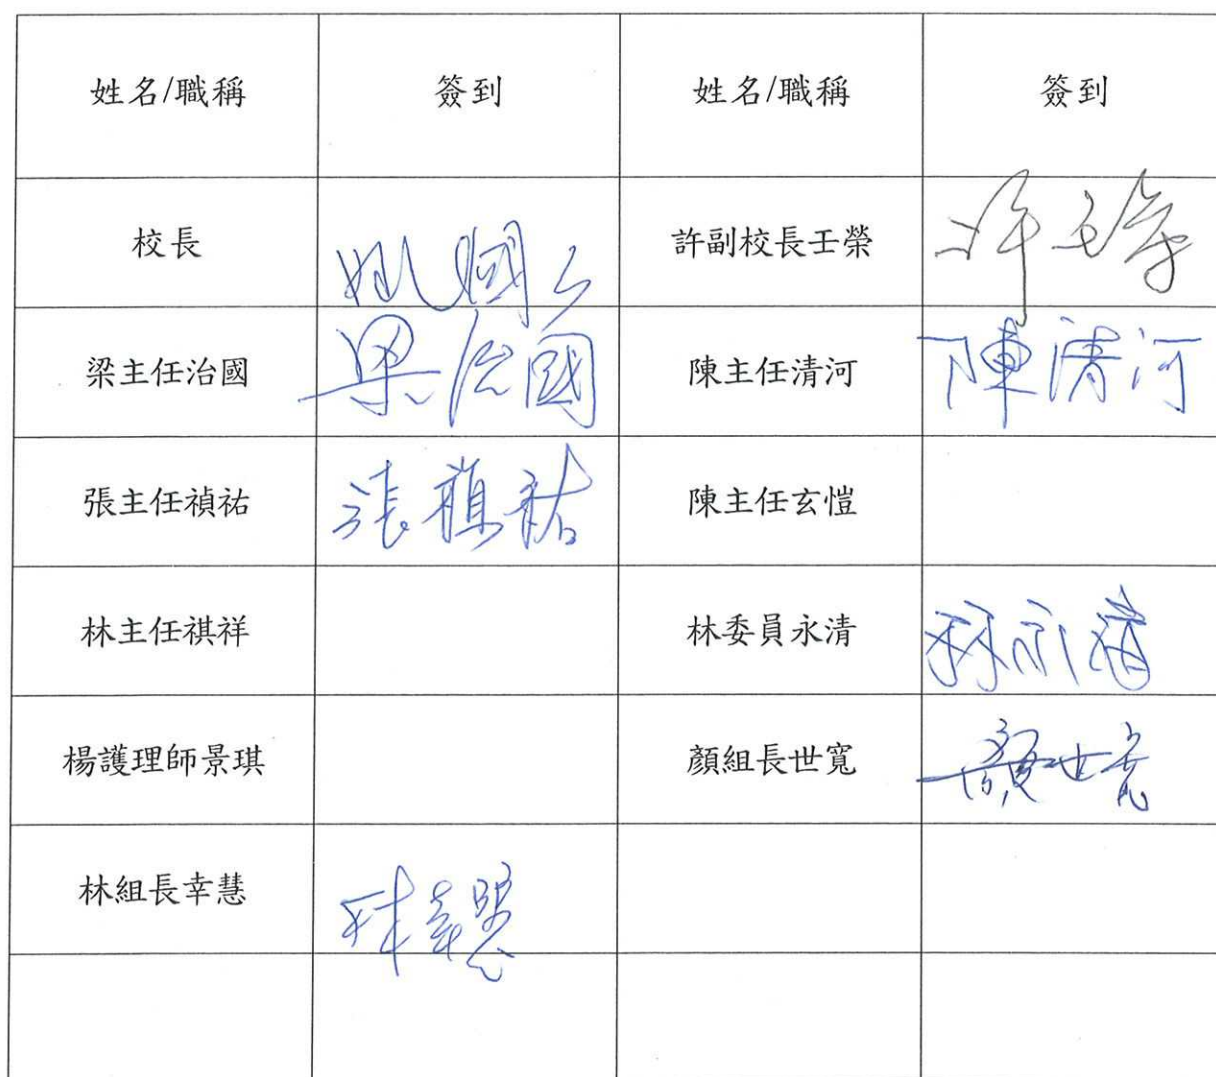 姓名/職稱 簽到 姓名/職稱 簽到
校長 許副校長壬榮 許壬榮
梁主任治國 梁治國 陳主任清河 陳清河
張主任禎祐 張禎祐 陳主任玄愷
林主任祺祥 林委員永清 林永清
楊護理師景琪 顏組長世寬 顏世寬
林組長幸慧 林幸慧